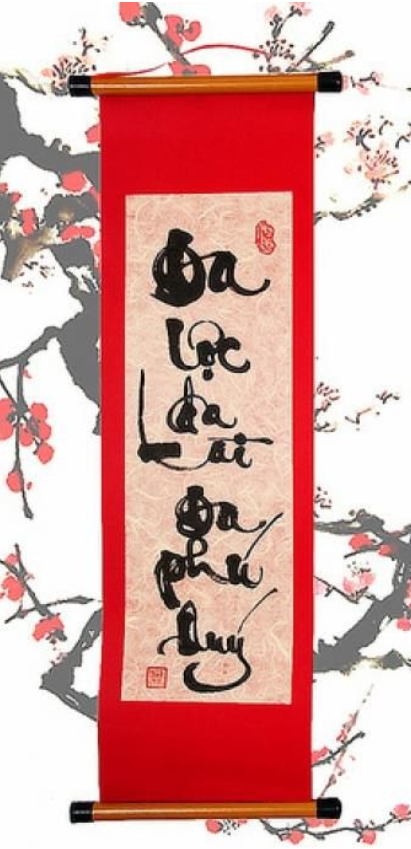 Đa
lộc
đa
Lài
Đa
phú
Quý